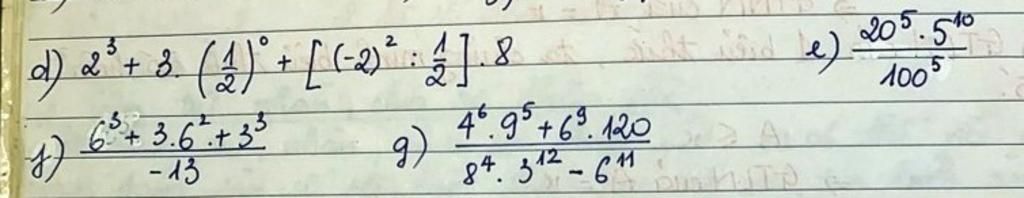 d) 2³ + 3. (1/2)⁰ + [(-2)² : 1/2] . 8 e) (20⁵ . 5¹⁰)/(100⁵)
f) (6³ + 3.6² + 3³)/(-13) g) (4⁶ . 9⁵ + 6⁹ . 120)/(8⁴ . 3¹² - 6¹¹)